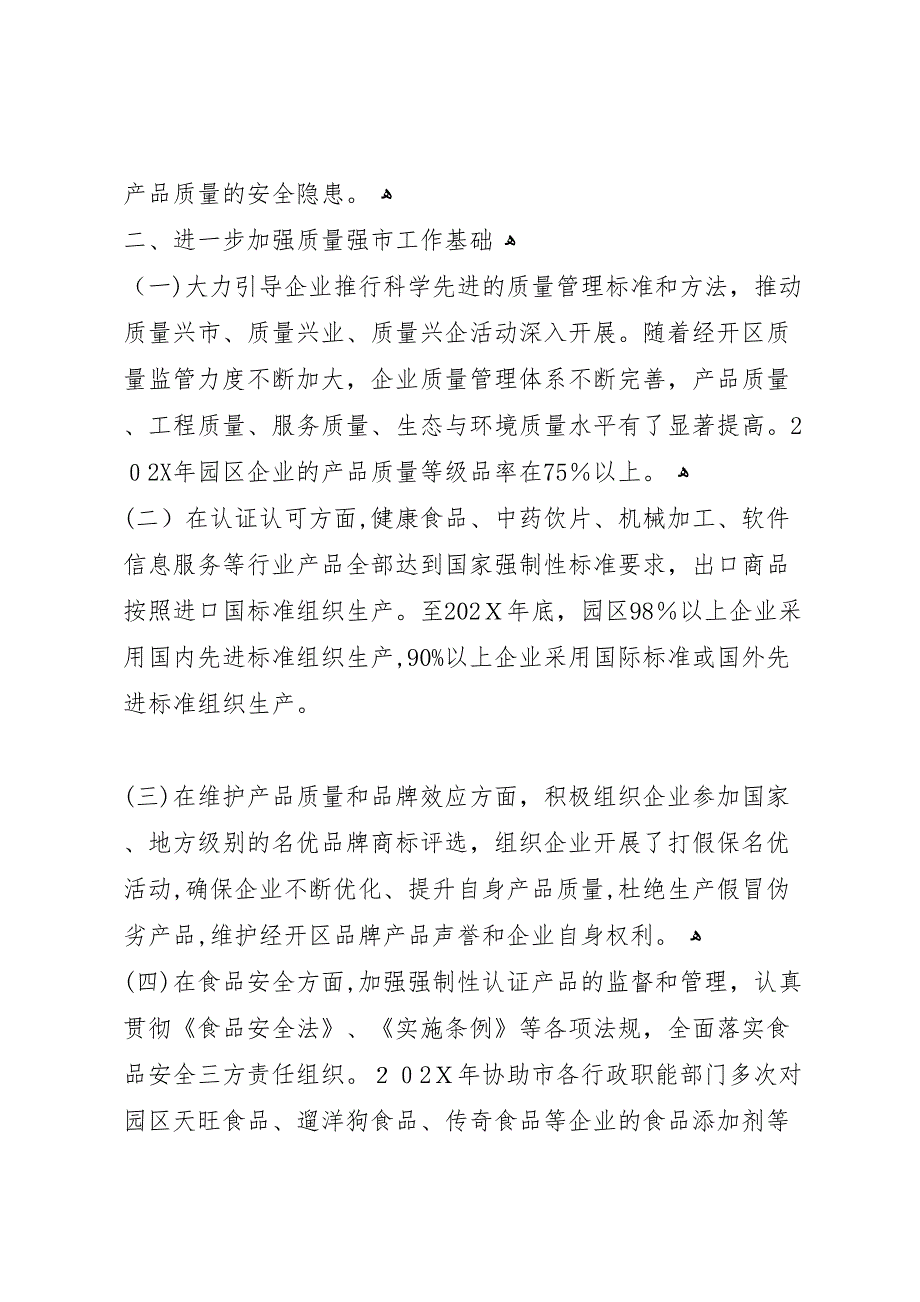 产品质量的安全隐患。 ﻫ
二、进一步加强质量强市工作基础 ﻫ
（一)大力引导企业推行科学先进的质量管理标准和方法，推动
质量兴市、质量兴业、质量兴企活动深入开展。随着经开区质
量监管力度不断加大，企业质量管理体系不断完善，产品质量
、工程质量、服务质量、生态与环境质量水平有了显著提高。2
02X年园区企业的产品质量等级品率在75％以上。 ﻫ
(二）在认证认可方面,健康食品、中药饮片、机械加工、软件
信息服务等行业产品全部达到国家强制性标准要求，出口商品
按照进口国标准组织生产。至202Ｘ年底，园区98％以上企业采
用国内先进标准组织生产,90%以上企业采用国际标准或国外先
进标准组织生产。
(三)在维护产品质量和品牌效应方面，积极组织企业参加国家
、地方级别的名优品牌商标评选，组织企业开展了打假保名优
活动,确保企业不断优化、提升自身产品质量,杜绝生产假冒伪
劣产品,维护经开区品牌产品声誉和企业自身权利。 ﻫ
(四)在食品安全方面,加强强制性认证产品的监督和管理，认真
贯彻《食品安全法》、《实施条例》等各项法规，全面落实食
品安全三方责任组织。２02Ｘ年协助市各行政职能部门多次对
园区天旺食品、遛洋狗食品、传奇食品等企业的食品添加剂等